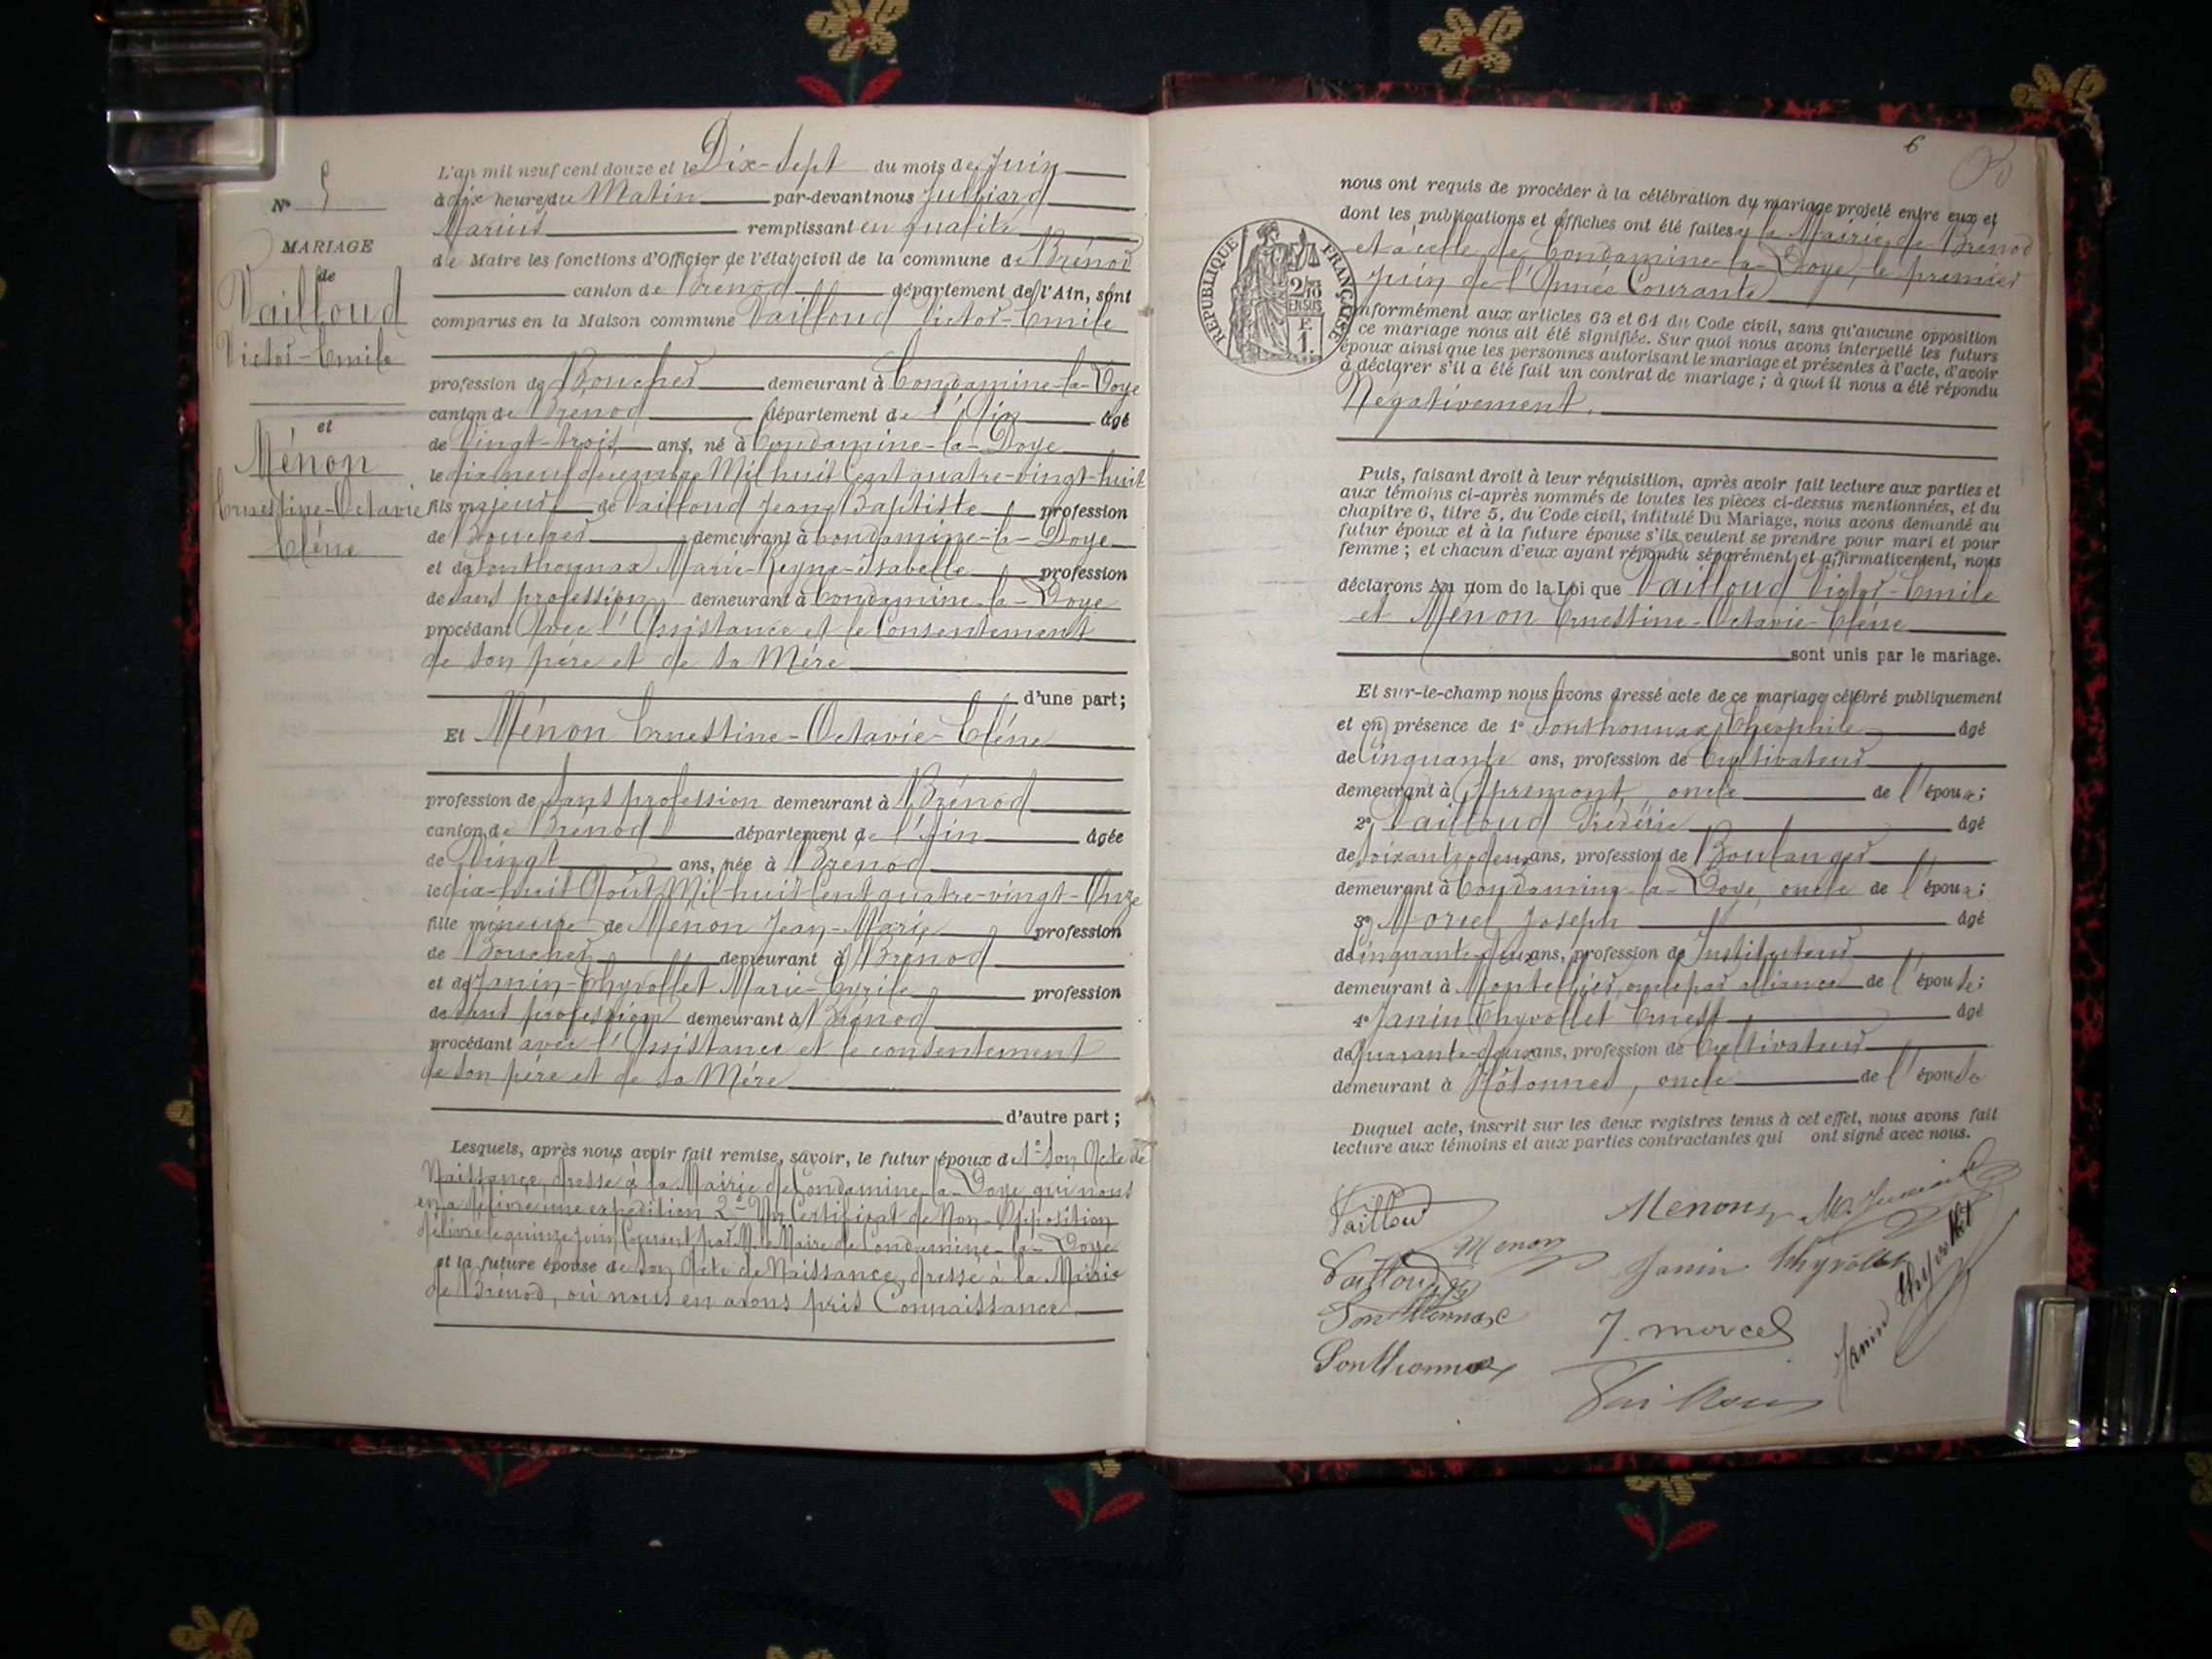 Nº 5
MARIAGE
de
Vailloud
Victor-Emile
et
Ménon
Ernestine-Octavie
Cléne
L'an mil neuf cent douze et le Dix-Sept du mois de Juin
à dix heure du Matin par-devant nous Julliard
Marius remplissant en qualité
de Maire les fonctions d'Officier de l'état civil de la commune de Brénod
canton de Brénod département de l'Ain, sont
comparus en la Maison commune Vailloud Victor-Emile
profession de Boucher demeurant à Condamine-la-Doye
canton de Brénod département de l'Ain âgé
de Vingt-trois ans, né à Condamine-la-Doye
le dix neuf decembre Mil huit Cent quatre-vingt-huit
fils majeur de Vailloud Jean Baptiste profession
de Boucher demeurant à Condamine-la-Doye
et de Sonthonnax Marie-Reyne-Isabelle profession
de sans profession demeurant à Condamine-la-Doye
procédant Avec l'Assistance et le Consentement
de son père et de sa Mère
d'une part;
Et Ménon Ernestine-Octavie-Cléne
profession de Sans profession demeurant à Brénod
canton de Brénod département de l'Ain âgée
de Vingt ans, née à Brénod
le dix-huit Août Mil huit Cent quatre-vingt-Onze
fille mineure de Menon Jean-Marie profession
de Boucher demeurant à Brénod
et de Janin-Thyvollet Marie-Cyrile profession
de sans profession demeurant à Brénod
procédant avec l'Assistance et le consentement
de son père et de sa Mère
d'autre part;
Lesquels, après nous avoir fait remise, savoir, le futur époux de 1º Son Acte de
Naissance, dressé à la Mairie de Condamine-la-Doye qui nous
en a délivré une expédition 2º Un Certificat de Non-Opposition
délivré le quinze juin Courant par M. le Maire de Condamine-la-Doye
et la future épouse de son Acte de Naissance, dressé à la Mairie
de Brénod, où nous en avons pris Connaissance
6
nous ont requis de procéder à la célébration du mariage projeté entre eux et
dont les publications et affiches ont été faites à la Mairie de Brénod
et à celle de Condamine-la-Doye, le premier
Juin de l'Année Courante
RÉPUBLIQUE FRANÇAISE
2/10
EN SUS
F.
1.
nformément aux articles 63 et 64 du Code civil, sans qu'aucune opposition
ce mariage nous ait été signifiée. Sur quoi nous avons interpellé les futurs
époux ainsi que les personnes autorisant le mariage et présentes à l'acte, d'avoir
à déclarer s'il a été fait un contrat de mariage; à quoi il nous a été répondu
Négativement.
Puis, faisant droit à leur réquisition, après avoir fait lecture aux parties et
aux témoins ci-après nommés de toutes les pièces ci-dessus mentionnées, et du
chapitre 6, titre 5, du Code civil, intitulé Du Mariage, nous avons demandé au
futur époux et à la future épouse s'ils veulent se prendre pour mari et pour
femme; et chacun d'eux ayant répondu séparément et affirmativement, nous
déclarons Au nom de la Loi que Vailloud Victor-Emile
et Ménon Ernestine-Octavie-Cléne
sont unis par le mariage.
Et sur-le-champ nous avons dressé acte de ce mariage célébré publiquement
et en présence de 1º Sonthonnax Théophile âgé
de Cinquante ans, profession de Cultivateur
demeurant à Apremont, oncle de l'époux;
2º Vailloud Frédéric âgé
de soixante-deux ans, profession de Boulanger
demeurant à Condamine-la-Doye, oncle de l'époux;
3º Morcel Joseph âgé
de cinquante-deux ans, profession de Instituteur
demeurant à oncle par alliance de l'épouse;
4º Janin Thyvollet Ernest âgé
de quarante-deux ans, profession de Cultivateur
demeurant à Hotonnes, oncle de l'épouse
Duquel acte, inscrit sur les deux registres tenus à cet effet, nous avons fait
lecture aux témoins et aux parties contractantes qui ont signé avec nous.
Vailloud Menon M. Julliard
Menon
Vailloud Janin Thyvollet
Sonthonnax
J. morcel
Janin Thyvollet
Sonthonnax
Vailloud